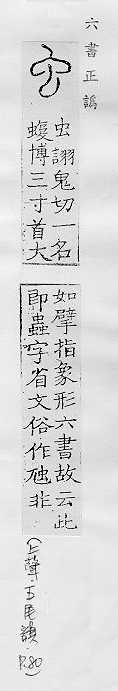 六書正譌
虫詡鬼切一名
蝮博三寸首大
如擘指象形六書故云此
即蟲字省文俗作虺非
(上聲五尾韻
P.80)